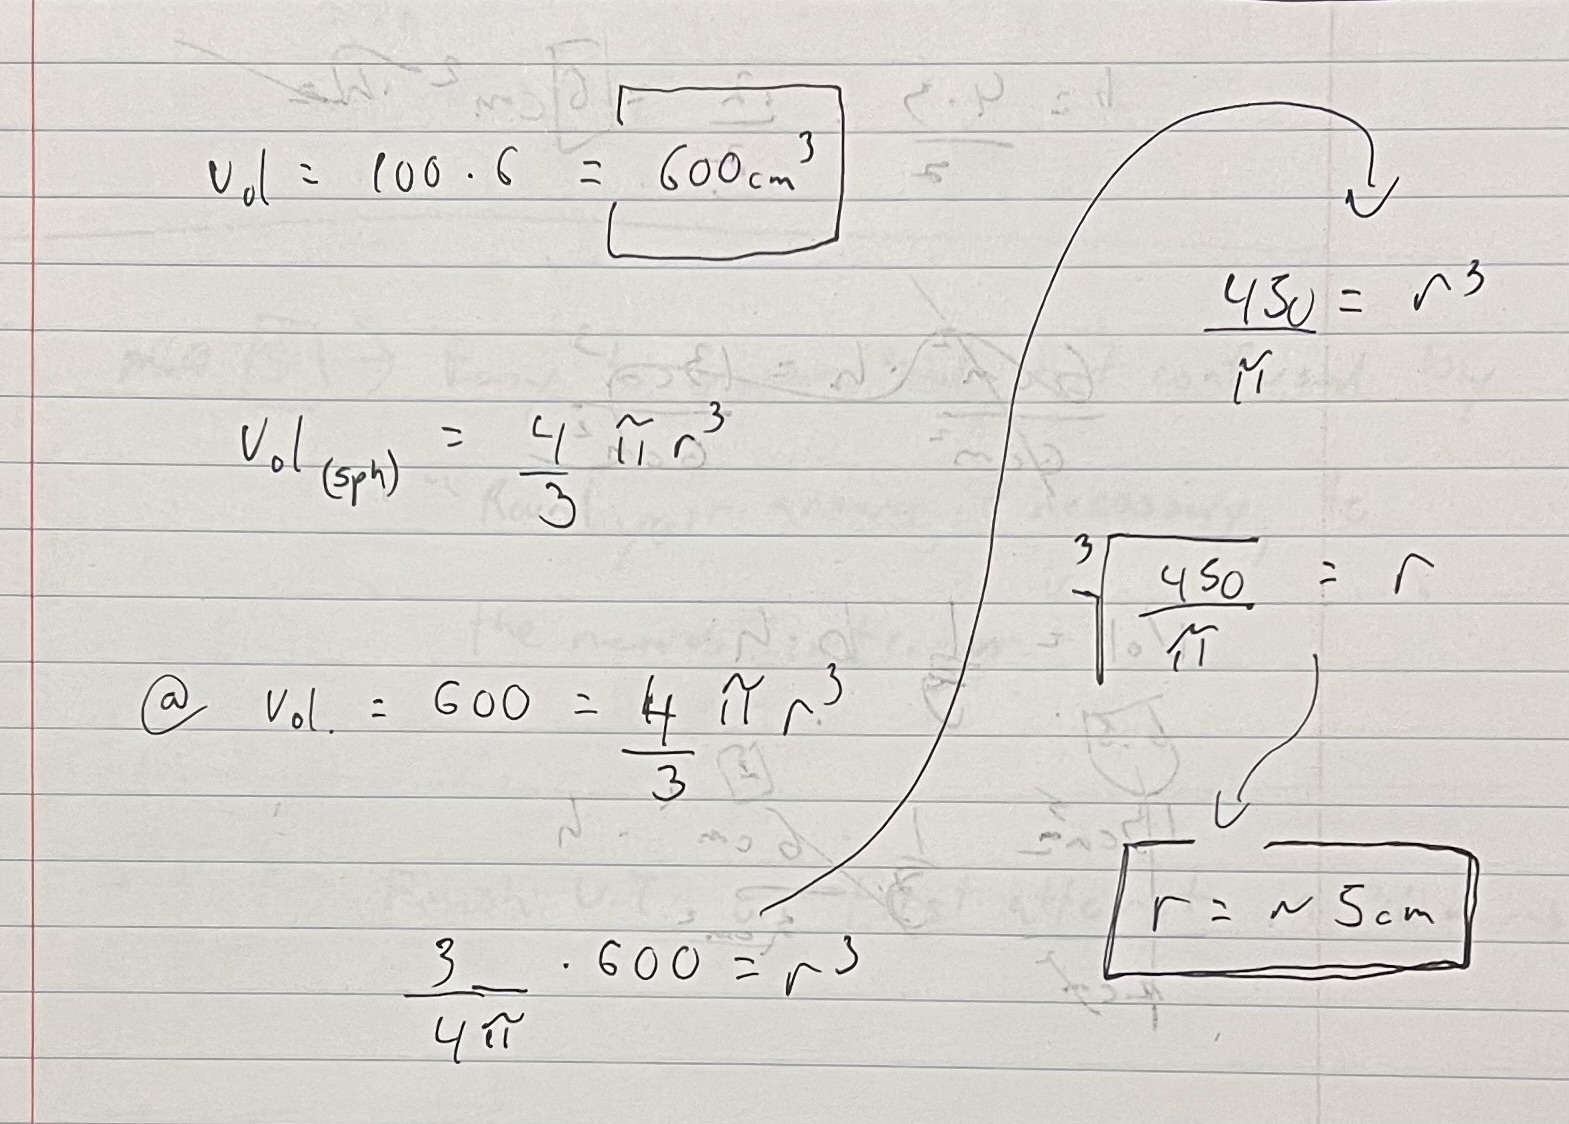 Vol = 100 . 6 = 600cm³
Vol (sph) = 4/3 π r³
@ Vol. = 600 = 4/3 π r³
3/4π . 600 = r³
450/π = r³
³√450/π = r
r = ~ 5cm